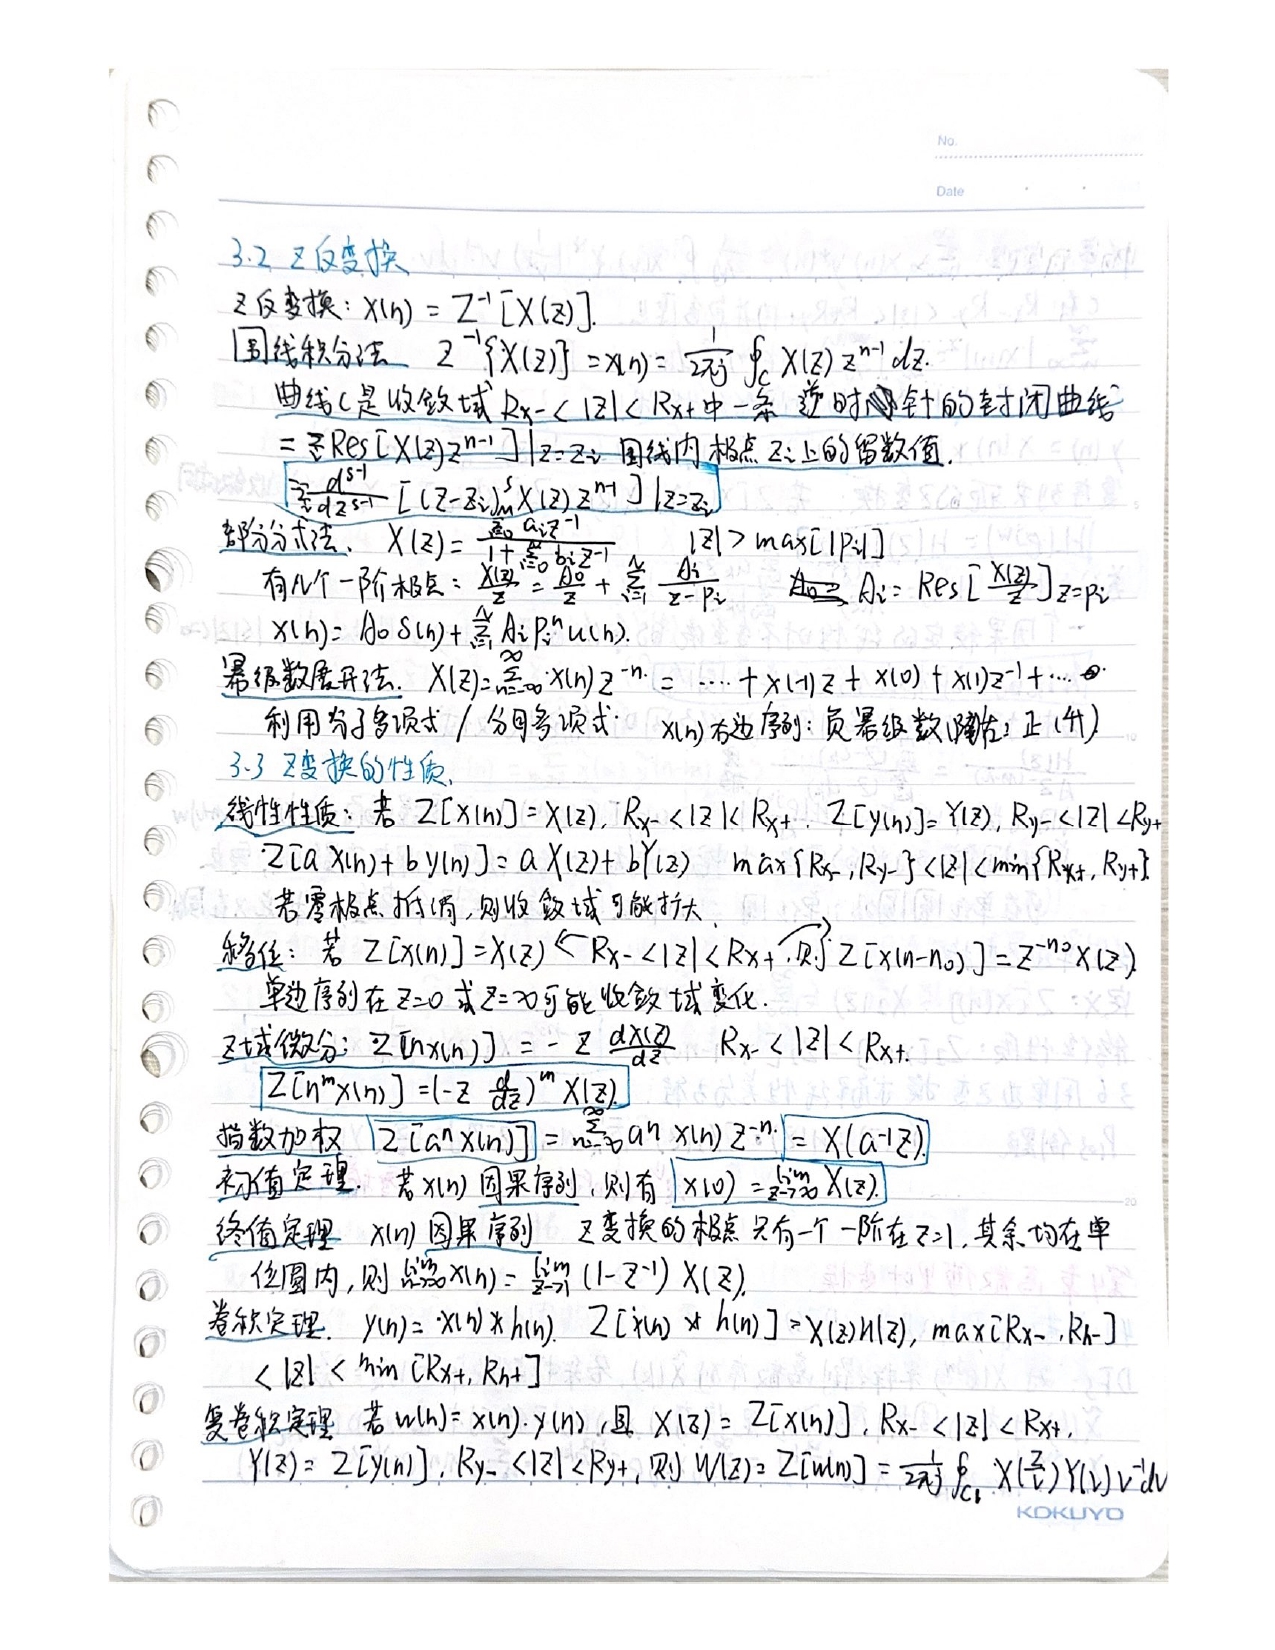 No.
Date
3.2 Z反变换
Z反变换: x(n) = Z⁻¹[X(z)].
围线积分法 Z⁻¹{X(z)} = x(n) = \frac{1}{2πj} ∮_C X(z) z^{n-1} dz.
曲线C是收敛域 Rx- < |z| < Rx+ 中一条 逆时针的封闭曲线
= Σ_i Res[X(z)z^{n-1}]|z=zi 围线内极点 zi 上的留数值.
Σ \frac{d^{s-1}}{dz^{s-1}} [(z-zi)^s X(z) z^{n-1}]|z=zi
部分分式法. X(z) = \frac{Σ_{i=0}^{M} ai z^{-1}}{1+Σ_{i=0}^{N} bi z^{-1}} |z| > max[|Pi|]
有N个一阶极点: \frac{X(z)}{z} = \frac{A0}{z} + Σ_{i=1}^{N} \frac{Ai}{z-Pi} Ai = Res[\frac{X(z)}{z}]z=Pi
x(n) = A0 δ(n) + Σ_{i=1}^{N} Ai Pi^n u(n).
幂级数展开法. X(z) = Σ_{n=-∞}^{∞} x(n) z^{-n} = ···· + x(-1)z + x(0) + x(1)z⁻¹ + ····
利用分子多项式 / 分母多项式: x(n)右边序列: 负幂级数(降) 左: 正(升)
3.3 Z变换的性质.
线性性质: 若 Z[x(n)] = X(z), Rx- < |z| < Rx+. Z[y(n)] = Y(z), Ry- < |z| < Ry+
Z[a x(n) + b y(n)] = a X(z) + b Y(z) max{Rx-, Ry-} < |z| < min{Rx+, Ry+}
若零极点抵消, 则收敛域可能扩大
移位: 若 Z[x(n)] = X(z) Rx- < |z| < Rx+, 则 Z[x(n-n0)] = z^{-n0} X(z)
单边序列在 z=0 或 z=∞ 可能收敛域变化.
Z域微分: Z[nx(n)] = -z \frac{dX(z)}{dz} Rx- < |z| < Rx+.
Z[n^m x(n)] = (-z \frac{d}{dz})^m X(z).
指数加权 Z[a^n x(n)] = Σ_{n=-∞}^{∞} a^n x(n) z^{-n} = X(a⁻¹z).
初值定理. 若 x(n) 因果序列, 则有 x(0) = lim_{z→∞} X(z).
终值定理 x(n) 因果序列 Z变换的极点只有一个一阶在z=1, 其余均在单
位圆内, 则 lim_{n→∞} x(n) = lim_{z→1} (1-z⁻¹) X(z).
卷积定理. y(n) = x(n) * h(n). Z[x(n) * h(n)] = X(z)H(z), max[Rx-, Rh-]
< |z| < min[Rx+, Rh+]
复卷积定理 若 w(n) = x(n)·y(n), 且 X(z) = Z[x(n)], Rx- < |z| < Rx+,
Y(z) = Z[y(n)], Ry- < |z| < Ry+, 则 W(z) = Z[w(n)] = \frac{1}{2πj} ∮_{C1} X(\frac{z}{v}) Y(v) v⁻¹ dv
KOKUYO